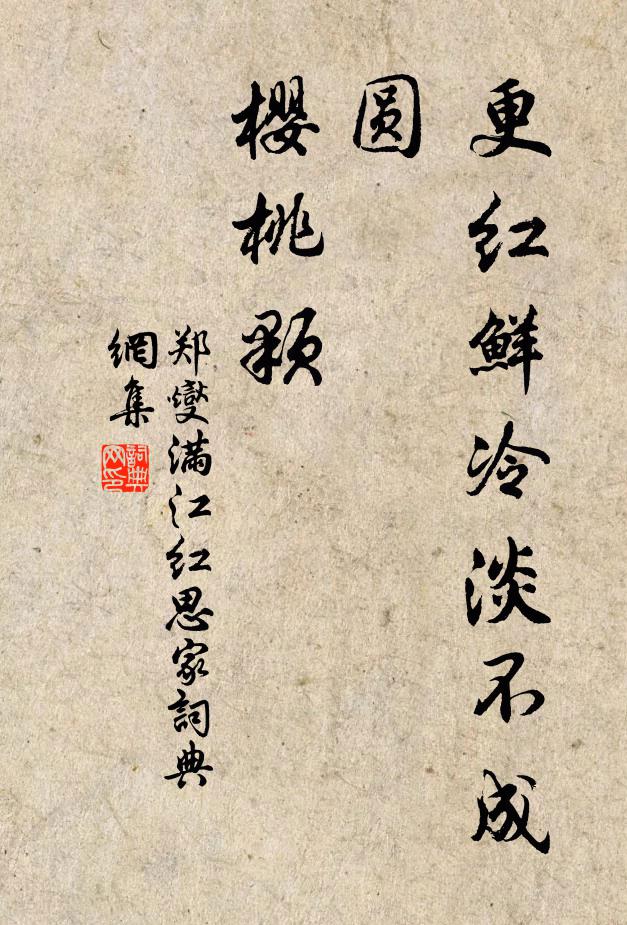 更红鮮冷淡不成
圆
櫻桃顆
郑燮满江红思家詞典
網集
詞典
网印